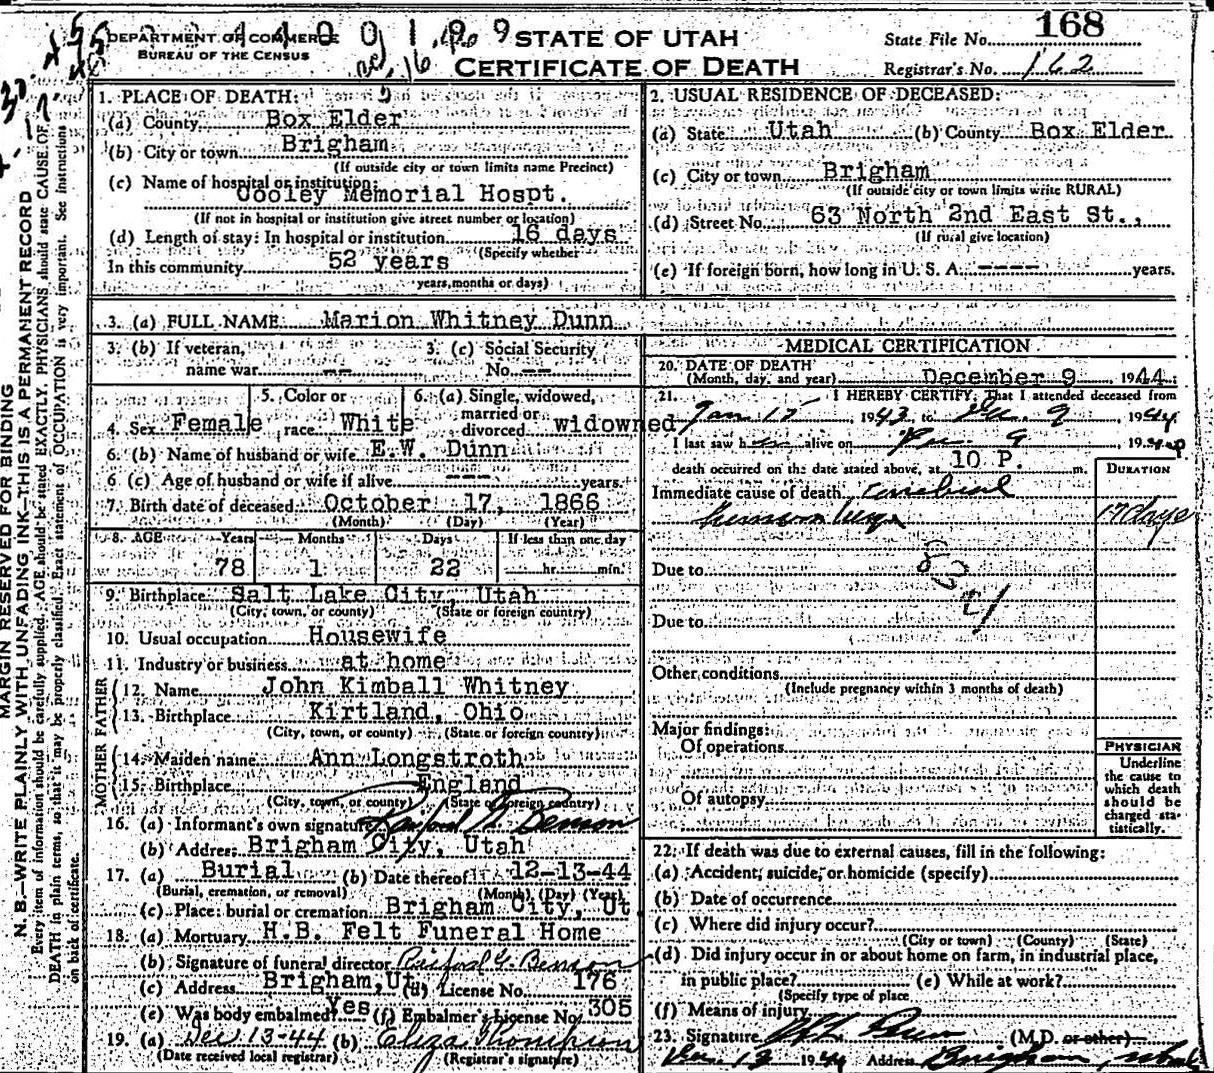 DEPARTMENT OF COMMERCE
BUREAU OF THE CENSUS
STATE OF UTAH
CERTIFICATE OF DEATH
State File No. 168
Registrar's No. 162
MARGIN RESERVED FOR BINDING
N. B.—WRITE PLAINLY WITH UNFADING INK—THIS IS A PERMANENT RECORD
Every item of information should be carefully supplied. AGE should be stated EXACTLY. PHYSICIANS should state CAUSE OF
DEATH in plain terms, so that it may be properly classified. Exact statement of OCCUPATION is very important. See instructions
on back of certificate.
1. PLACE OF DEATH:
(a) County Box Elder
(b) City or town Brigham
(If outside city or town limits name Precinct)
(c) Name of hospital or institution:
Cooley Memorial Hospt.
(If not in hospital or institution give street number or location)
(d) Length of stay: In hospital or institution 16 days
(Specify whether
In this community 52 years
years, months or days)
2. USUAL RESIDENCE OF DECEASED:
(a) State Utah (b) County Box Elder
(c) City or town Brigham
(If outside city or town limits write RURAL)
(d) Street No. 63 North 2nd East St.,
(If rural give location)
(e) If foreign born, how long in U. S. A. ---- years.
3. (a) FULL NAME Marion Whitney Dunn
3. (b) If veteran, name war -- 3. (c) Social Security No. --
4. Sex Female 5. Color or race White 6. (a) Single, widowed, married or divorced widowed
6. (b) Name of husband or wife E.W. Dunn
6 (c) Age of husband or wife if alive --- years
7. Birth date of deceased October 17, 1866
(Month) (Day) (Year)
8. AGE Years Months Days If less than one day
78 1 22 hr. min.
9. Birthplace Salt Lake City, Utah
(City, town, or county) (State or foreign country)
10. Usual occupation Housewife
11. Industry or business at home
FATHER
12. Name John Kimball Whitney
13. Birthplace Kirtland, Ohio
(City, town, or county) (State or foreign country)
MOTHER
14. Maiden name Ann Longstroth
15. Birthplace England
(City, town, or county) (State or foreign country)
16. (a) Informant's own signature Raiford G. Benson
(b) Address Brigham City, Utah
17. (a) Burial (b) Date thereof 12-13-44
(Burial, cremation, or removal) (Month) (Day) (Year)
(c) Place: burial or cremation Brigham City, Ut.
18. (a) Mortuary H.B. Felt Funeral Home
(b) Signature of funeral director Raiford G. Benson
(c) Address Brigham, Ut. (d) License No. 176
(e) Was body embalmed? Yes (f) Embalmer's License No. 305
19. (a) Dec 13-44 (b) Eliza Thompson
(Date received local registrar) (Registrar's signature)
MEDICAL CERTIFICATION
20. DATE OF DEATH
(Month, day, and year) December 9, 1944
21. I HEREBY CERTIFY, That I attended deceased from
Jan 15 1943, to Dec. 9, 1944
I last saw her alive on Dec 9, 1944
death occurred on the date stated above, at 10 P. m.
DURATION
Immediate cause of death cerebral
hemorrhage 17 days
83 a1
Due to
Due to
Other conditions
(Include pregnancy within 3 months of death)
Major findings:
Of operations
Of autopsy
PHYSICIAN
Underline
the cause to
which death
should be
charged sta-
tistically.
22. If death was due to external causes, fill in the following:
(a) Accident, suicide, or homicide (specify)
(b) Date of occurrence
(c) Where did injury occur?
(City or town) (County) (State)
(d) Did injury occur in or about home on farm, in industrial place,
in public place? (e) While at work?
(Specify type of place
(f) Means of injury
23. Signature (M.D. or other)
Dec. 13 1944 Address Brigham, Utah